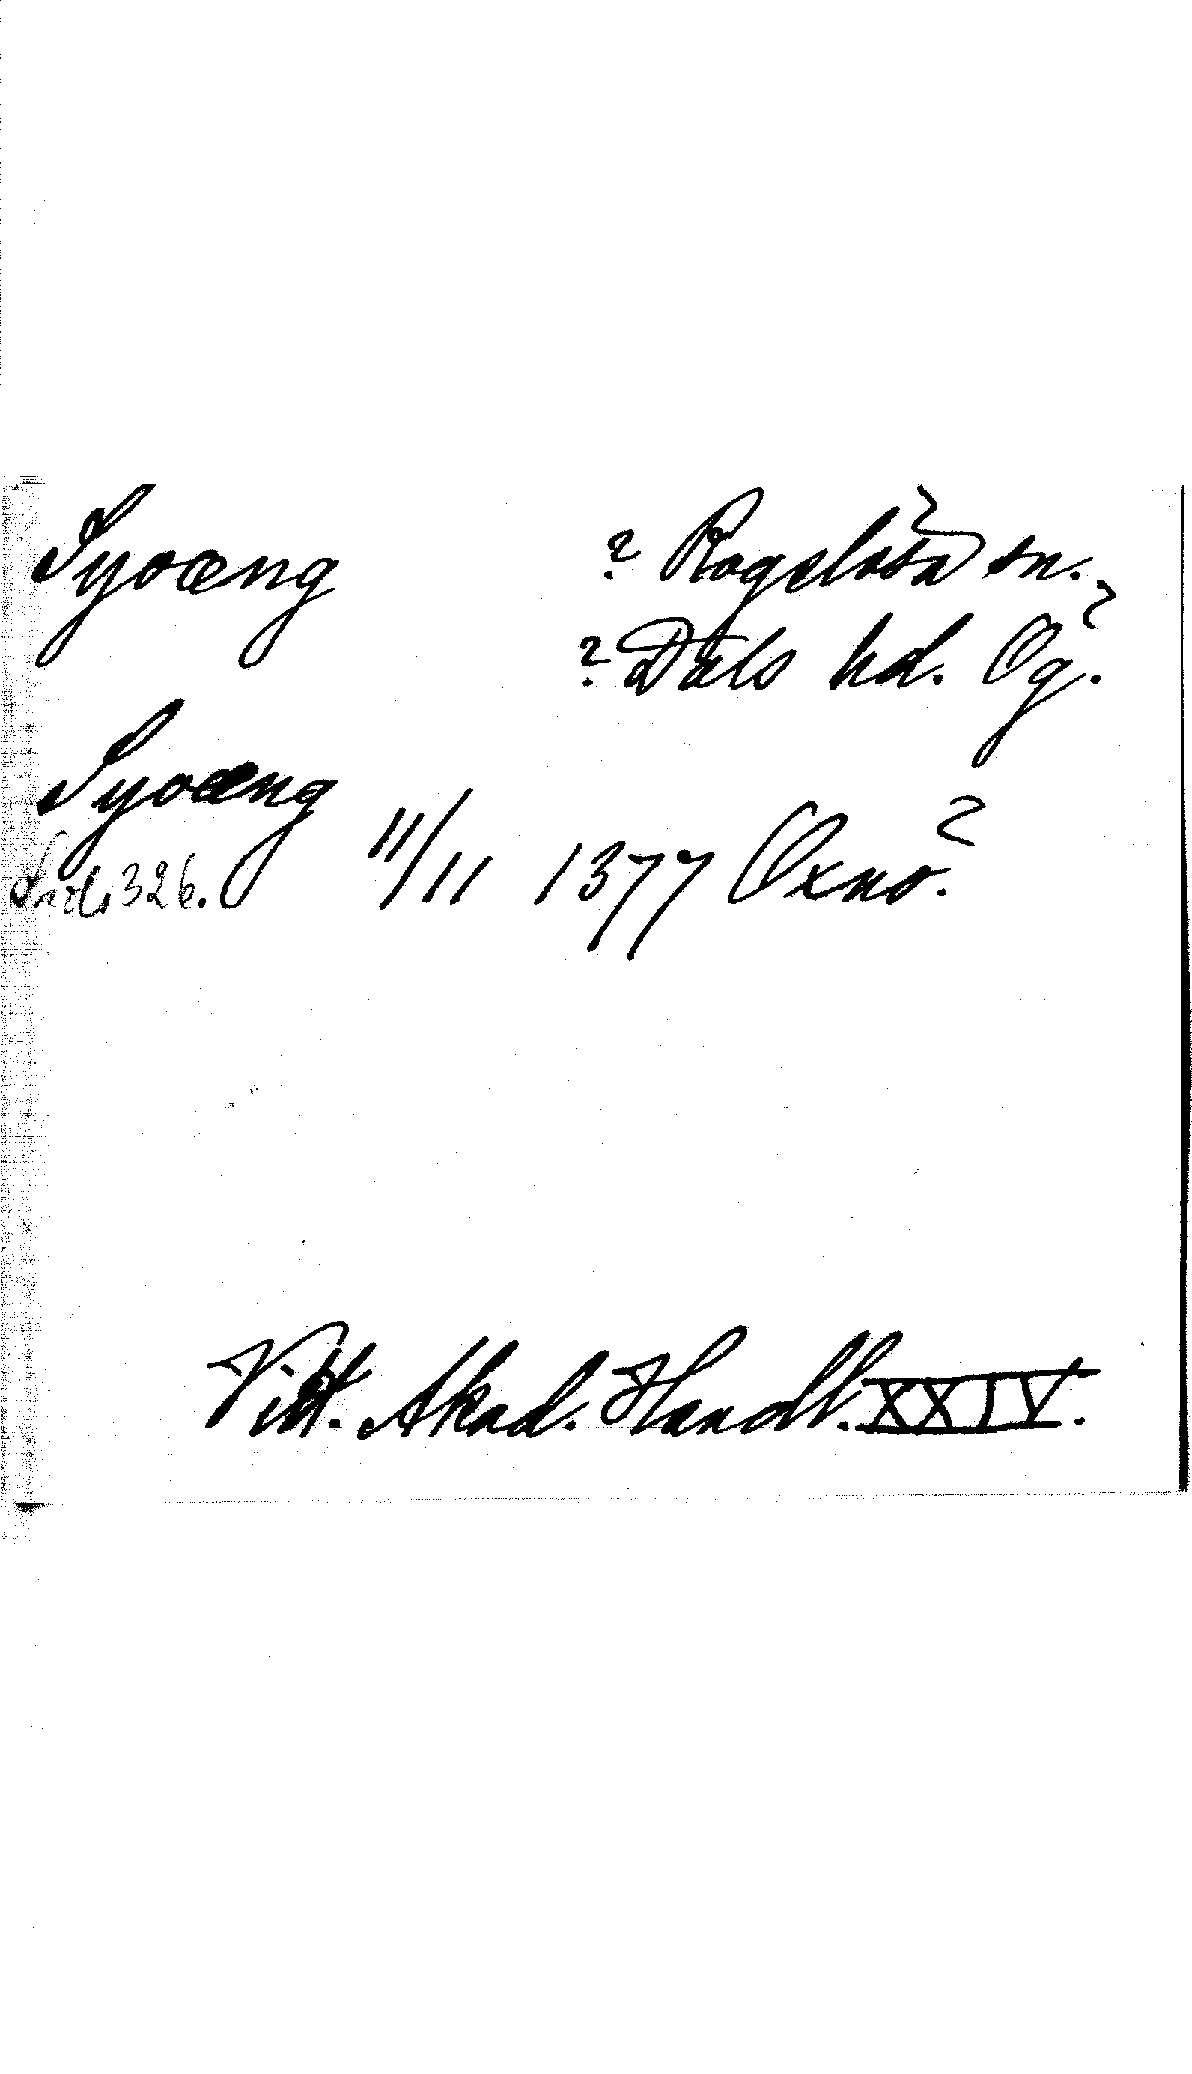 Syoæng ? Rogslösa sn.
? Dals hd. Ög.
Syoæng 11/11 1377 Oxnö.
326.
Vitt. Akad. Handl. XXIV.